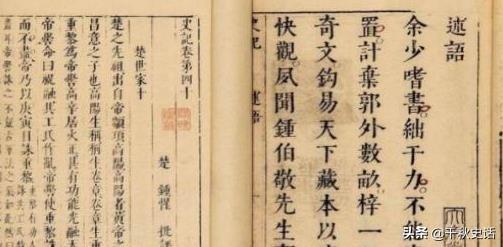 述語
余少嗜書絀于力不能
置計棄郭外數畝梓一
奇文鈞易天下藏本以
快觀夙聞鍾伯敬先生
史記 述語
史記卷第四十
楚 鍾惺 批評
楚世家十
楚之先祖出自帝顓頊高陽高陽者黃帝之
昌意之子也高陽生稱稱生卷章卷章生
重黎為帝嚳高辛居火正甚有功能光融天
帝嚳命曰祝融共工氏作亂帝嚳使重黎
而不盡帝乃以庚寅日誅重黎
头条 @千秋史话